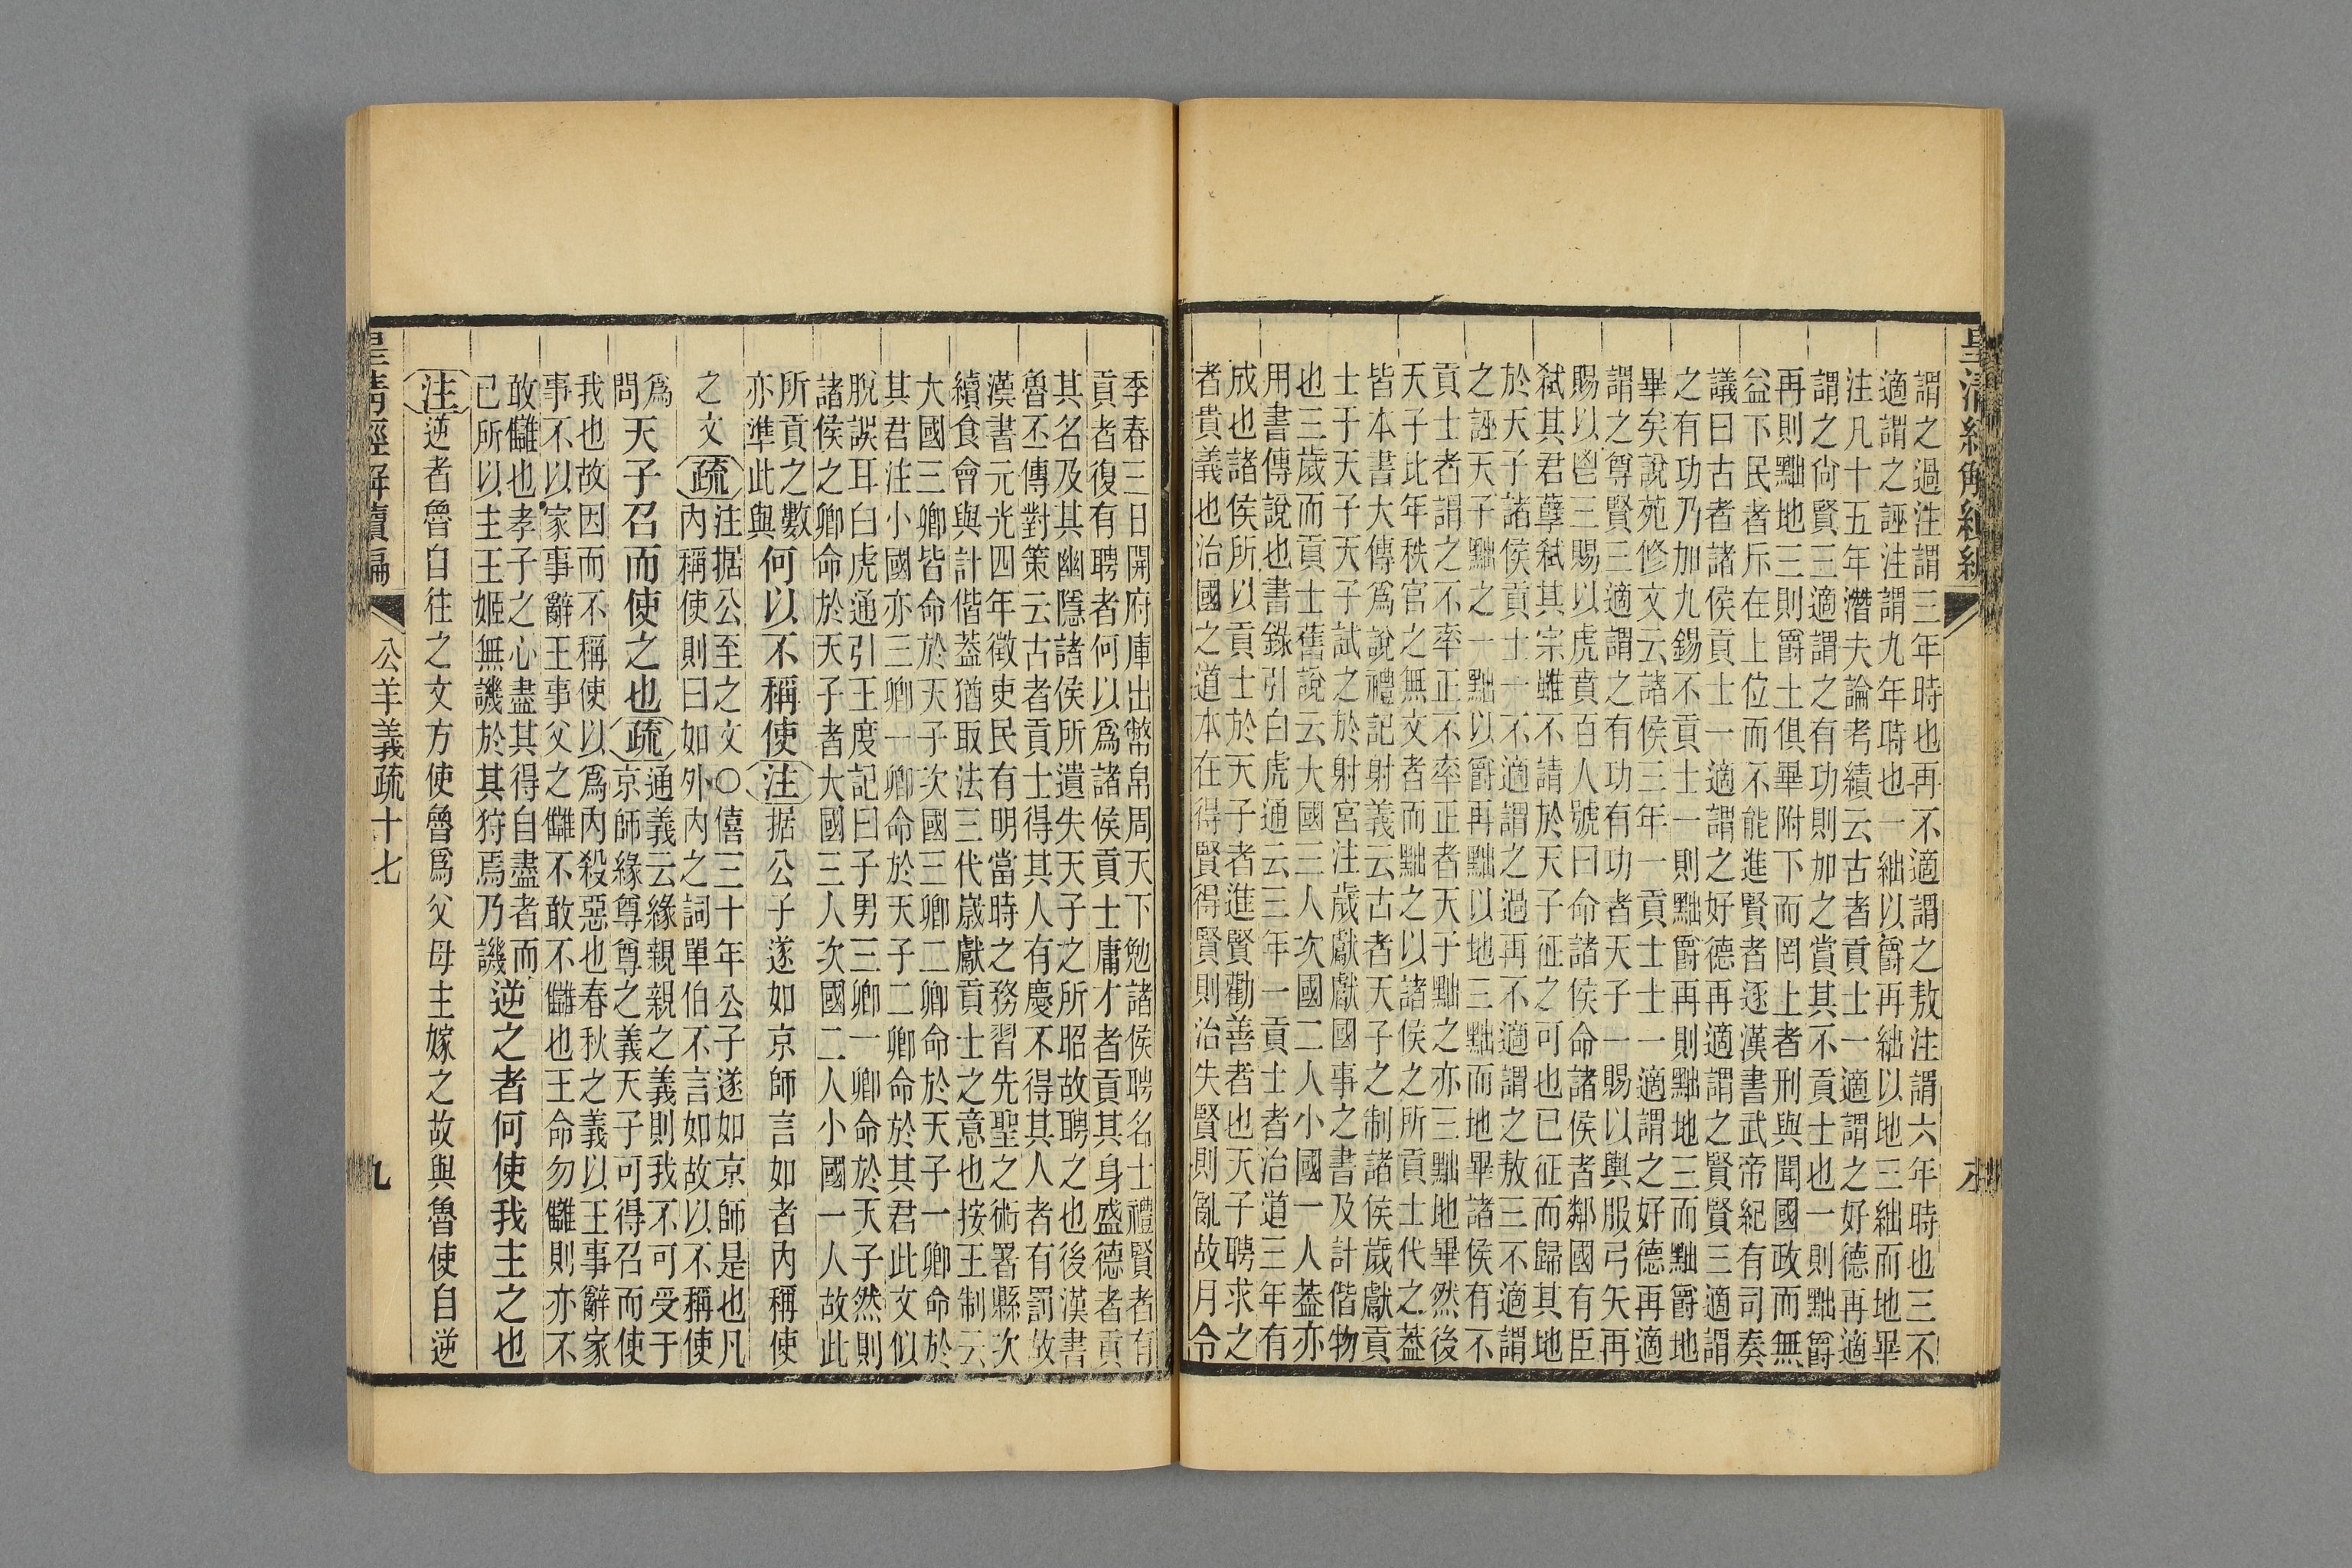 謂之過注謂三年時也再不適謂之敖注謂六年時也三不
適謂之誣注謂九年時也一絀以爵再絀以地三絀而地畢
注凡十五年潛夫論考績云古者貢士一適謂之好德再適
謂之尙賢三適謂之有功則加之賞其不貢士也一則黜爵
再則黜地三則爵土俱畢附下而罔上者刑與聞國政而無
益下民者斥在上位而不能進賢者逐漢書武帝紀有司奏
議曰古者諸侯貢士一適謂之好德再適謂之賢賢三適謂
之有功乃加九錫不貢士一則黜爵再則黜地三而黜爵地
畢矣說苑修文云諸侯三年一貢士士一適謂之好德再適
謂之尊賢三適謂之有功有功者天子一賜以輿服弓矢再
賜以鬯三賜以虎賁百人號曰命諸侯命諸侯者鄰國有臣
弒其君孽弒其宗雖不請於天子征之可也已征而歸其地
於天子諸侯貢士一不適謂之過再不適謂之敖三不適謂
之誣天子黜之一黜以爵再黜以地三黜而地畢諸侯有不
貢士者謂之不率正不率正者天子黜之亦三黜地畢然後
天子比年秩官之無文者而黜之以諸侯之所貢士代之蓋
皆本書大傳爲說禮記射義云古者天子之制諸侯歲獻貢
士于天子天子試之於射宮注歲獻獻國事之書及計偕物
也三歲而貢士舊說云大國三人次國二人小國一人蓋亦
用書傳說也書錄引白虎通云三年一貢士者治道三年有
成也諸侯所以貢士於天子者進賢勸善者也天子聘求之
者貴義也治國之道本在得賢得賢則治失賢則亂故月令
季春三日開府庫出幣帛周天下勉諸侯聘名士禮賢者有
貢者復有聘者何以爲諸侯貢士庸才者貢其身盛德者貢
其名及其幽隱諸侯所遺失天子之所昭故聘之也後漢書
魯丕傳對策云古者貢士得其人有慶不得其人者有罰故
漢書元光四年徵吏民有明當時之務習先聖之術署縣次
續食會與計偕蓋猶取法三代歲獻貢士之意也按王制云
大國三卿皆命於天子次國三卿二卿命於天子一卿命於
其君注小國亦三卿一卿命於天子二卿命於其君此文似
脫誤耳白虎通引王度記曰子男三卿一卿命於天子然則
諸侯之卿命於天子者大國三人次國二人小國一人故此
所貢之數
亦準此與何以不稱使注据公子遂如京師言如者內稱使
之文疏注据公至之文〇僖三十年公子遂如京師是也凡
內稱使則曰如外內之詞單伯不言如故以不稱使
爲
問天子召而使之也疏通義云緣親親之義則我不可受于
京師緣尊尊之義天子可得召而使
我也故因而不稱使以爲內殺惡也春秋之義以王事辭家
事不以家事辭王事父之讎不敢不讎也王命勿讎則亦不
敢讎也孝子之心盡其得自盡者而
已所以主王姬無譏於其狩焉乃譏逆之者何使我主之也
注逆者魯自往之文方使魯爲父母主嫁之故與魯使自逆
公羊義疏十七
九